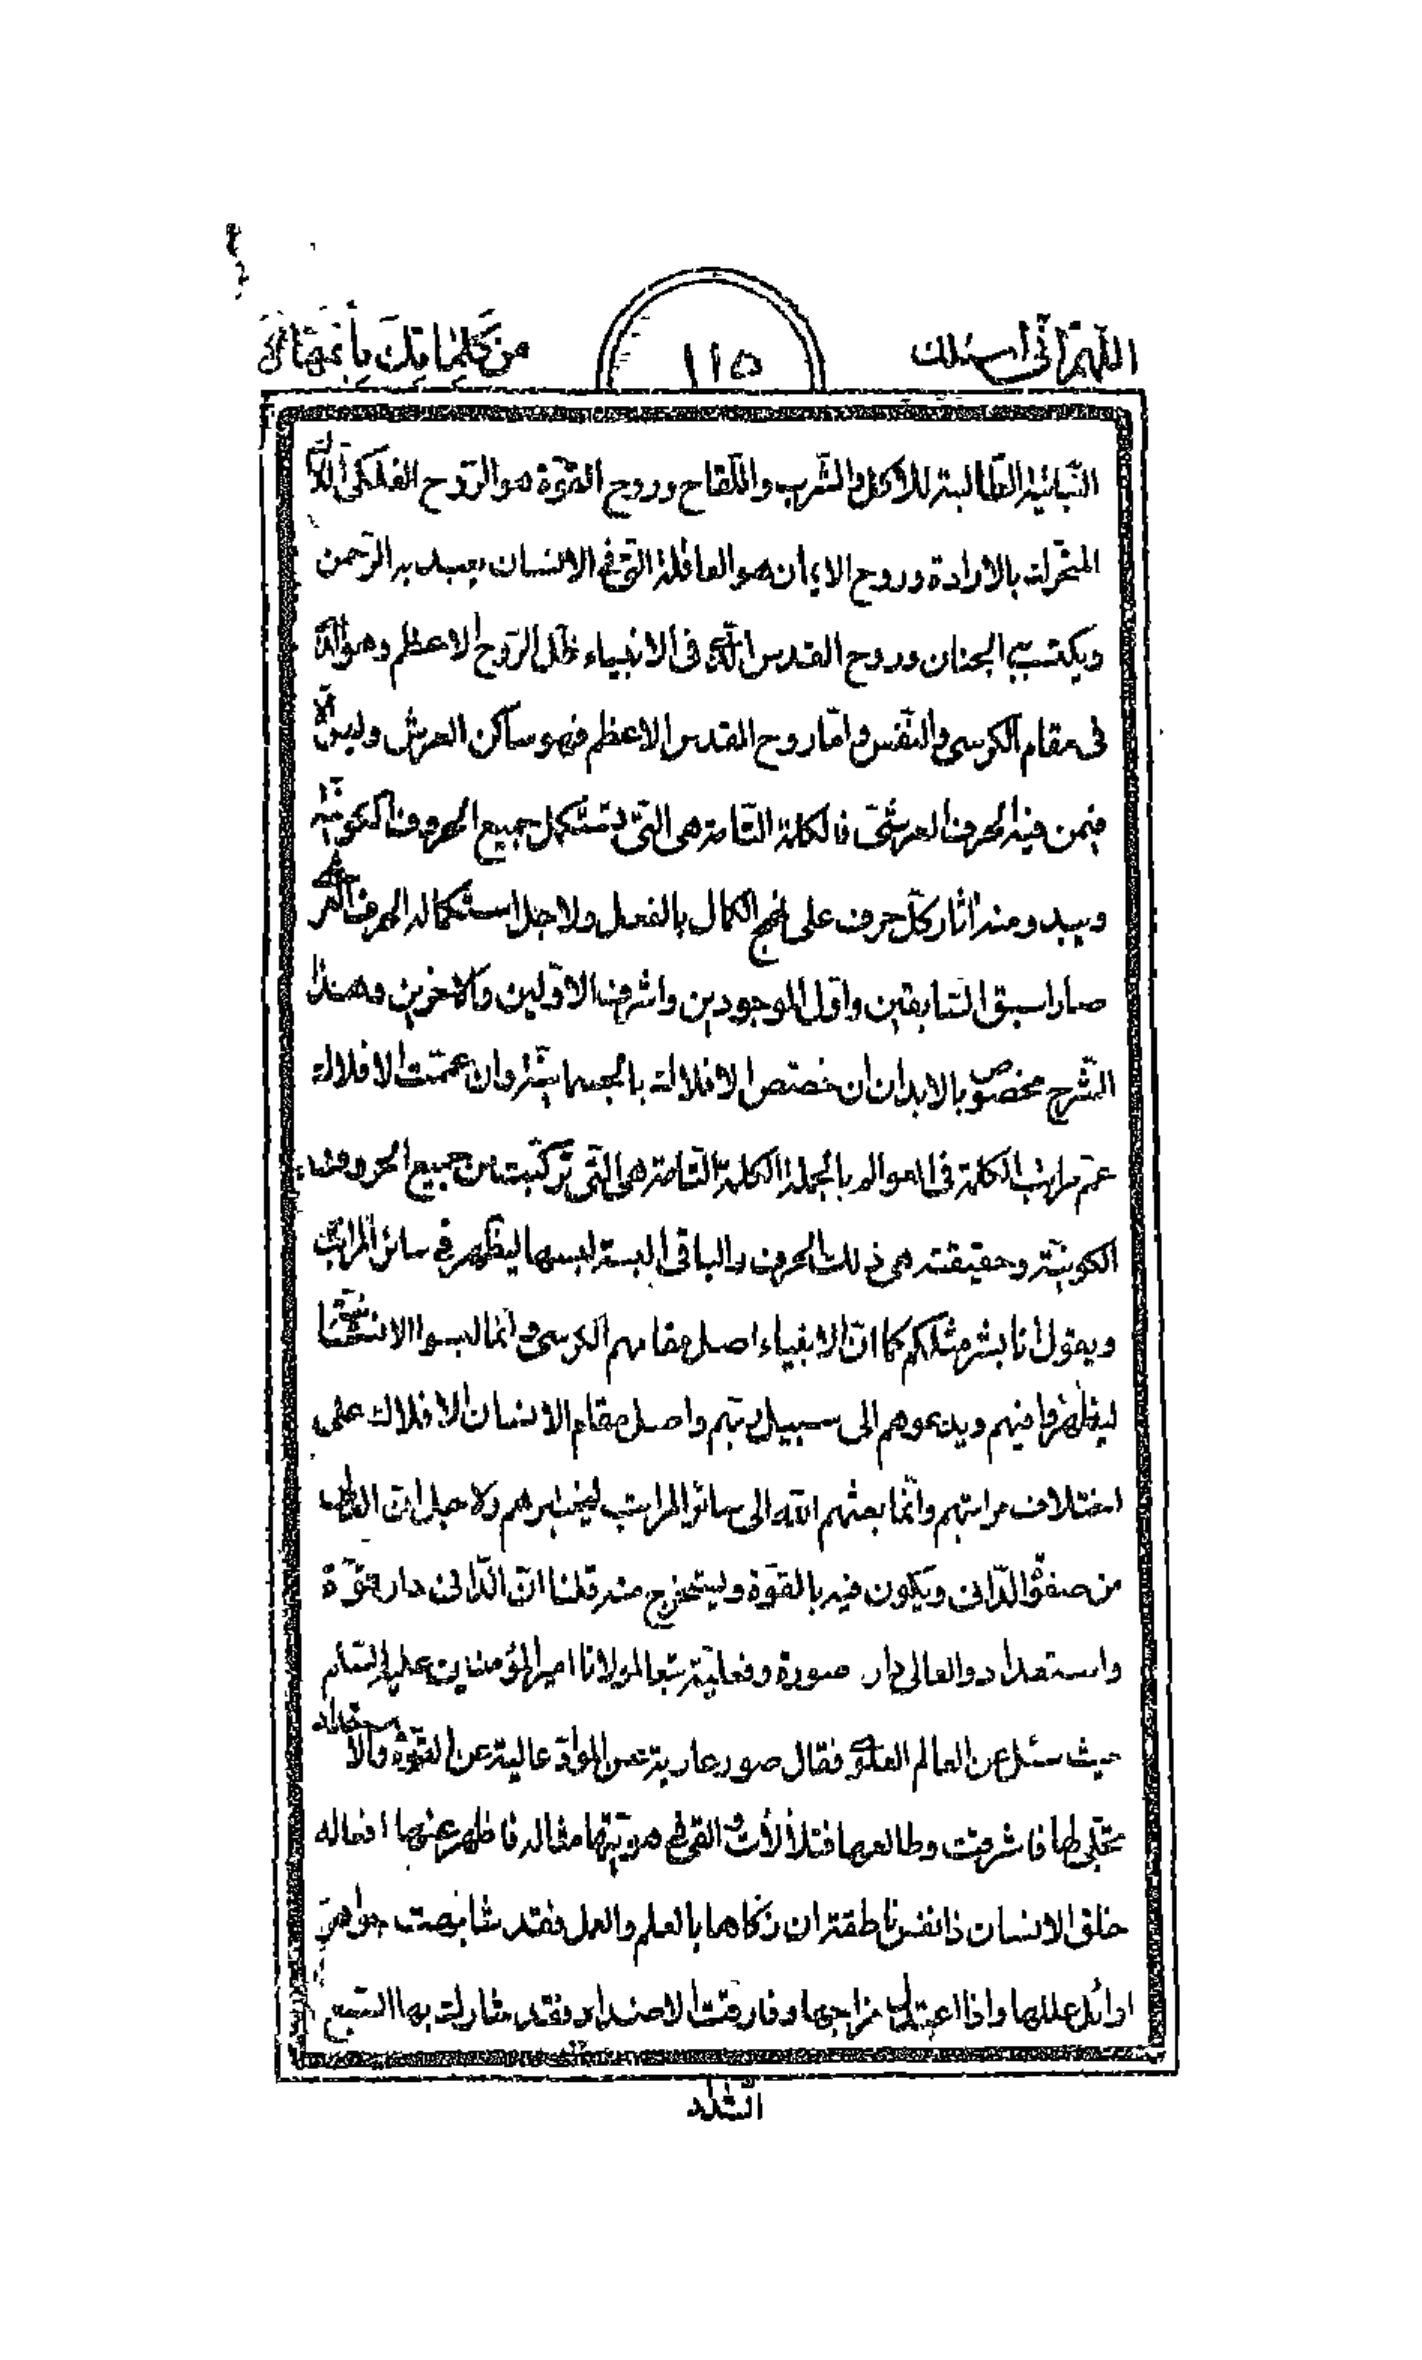 اللهم انی اسئلك ١١٥ من کلماتك باتمها
النباتیة الطالبة للاکل والشرب واللقاح وروح القوة هو الروح الفلکی
المتحرك بالارادة وروح الایمان هو العاقلة التی فی الانسان یعبد به الرحمن
ویکتسب الجنان وروح القدس الذی فی الانبیاء ظل الروح الاعظم وهو الذی
فی مقام الکرسی والنفس واما روح القدس الاعظم فهو ساکن العرش ولیس الا
فیمن فیه الحرف العرشی فالکلمة التامة هی التی تستکمل جمیع الحروف الکونیة
ویبدو منه اثار کل حرف علی نهج الکمال بالفعل ولاجل استکماله الحرف العرشی
صار اسبق السابقین واول الموجودین واشرف الاولین والاخرین وهذا
الشرح مخصوص بالابدان ان خصص الافلاك بالجسمانیة وان عممت الافلاك
عم مراتب الکلمة فی العوالم بالجملة الکلمة التامة هی التی ترکبت من جمیع الحروف
الکونیة وحقیقته هی ذلك الحرف والباقی البسة لبسها لیظهر فی سائر المراتب
ویقول انا بشر مثلکم کما ان الانبیاء اصل مقامهم الکرسی وانما لبسوا
لیظهروا فیهم ویدعوهم الی سبیل ربهم واصل مقام الانسان الافلاك علی
اختلاف مراتبهم وانما بعثهم الله الی سائر المراتب لیختبرهم ولاجل ان
من صفة الدانی ویکون فیه بالقوة ولیستخرج منه قلنا ان الدانی دار قوة
واستعداد والعالی دار صورة وفعلیة تبعا لمولانا امیر المؤمنین علیه السلم
حیث سئل عن العالم العلوی فقال صور عاریة عن المواد عالیة عن القوة والاستعداد
تجلی لها فاشرقت وطالعها فتلألأت والقی فی هویتها مثاله فاظهر عنها افعاله
خلق الانسان ذا نفس ناطقة ان زکاها بالعلم والعمل فقد شابهت جواهر
اوائل عللها واذا اعتدل مزاجها وفارقت الاضداد فقد شارك بها السبع
الشداد